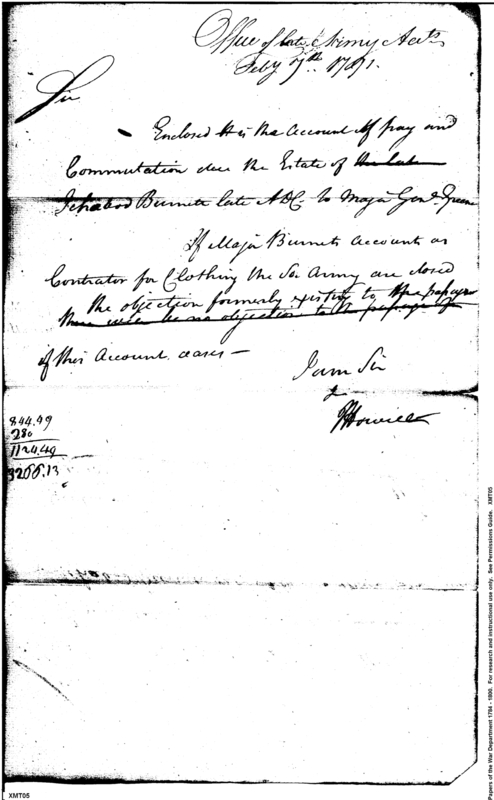 Office of late Army Accts
Feby 7th. 1791.
Sir
Enclosed is the Account of pay and
Commutation due the Estate of the late
Ichabod Burnett late ADC. to Major Genl. Greene
If Major Burnets Accounts as
Contrator for Clothing the So. Army are closed
the objection formerly existing to the papage
there will be no objection to the papage of
of this Account ceases —
I am Sir
&c
JHowell
844.49
280
1124.49
3266.13
XMT05
Papers of the War Department 1784 - 1800. For research and instructional use only. See Permissions Guide. XMT05